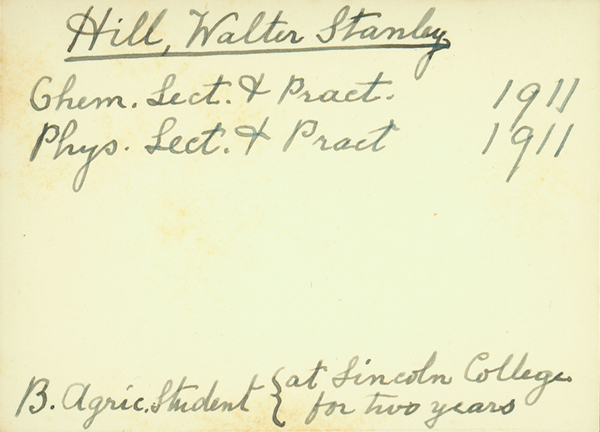 Hill, Walter Stanley
Chem. Lect. & Pract. 1911
Phys. Lect. & Pract 1911
B. Agric. Student { at Lincoln College
for two years